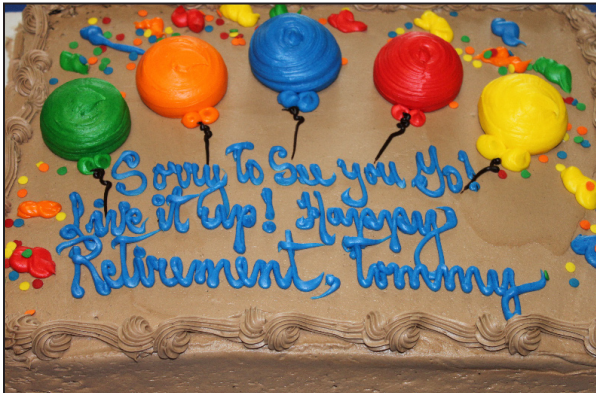 Sorry To See you Go!
Live it Up! Happy
Retirement, Tommy